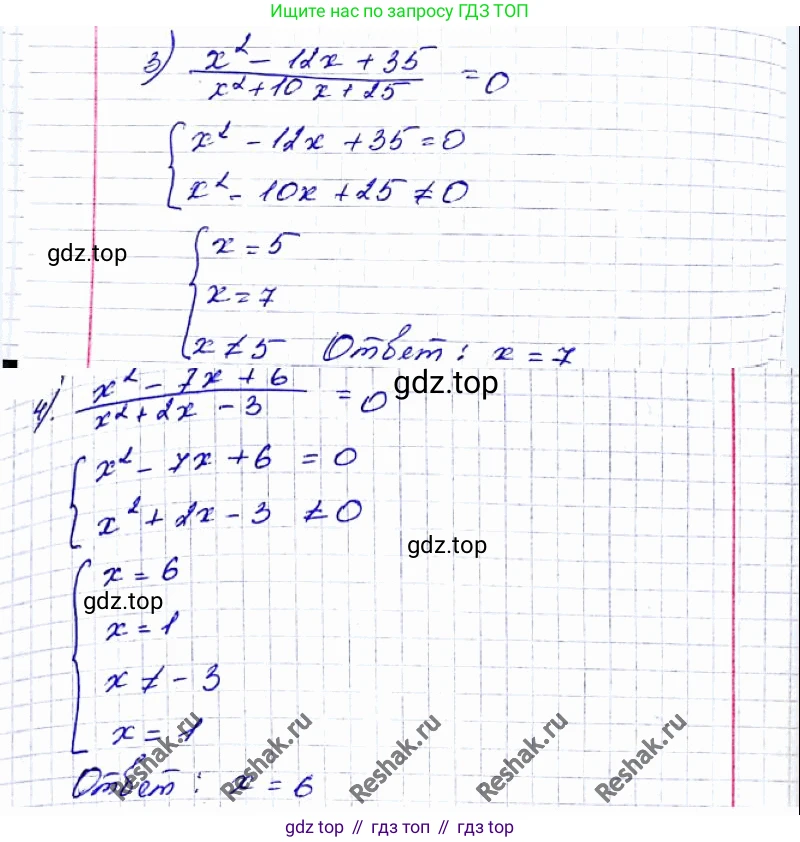 Ищите нас по запросу ГДЗ ТОП
3) x² - 12x + 35 / x² + 10x + 25 = 0
x² - 12x + 35 = 0
x² - 10x + 25 ≠ 0
x = 5
gdz.top
x = 7
x ≠ 5 Ответ: x = 7
4) x² - 7x + 6 / x² + 2x - 3 = 0
gdz.top
x² - 7x + 6 = 0
x² + 2x - 3 ≠ 0
gdz.top
x = 6
gdz.top
x = 1
x ≠ -3
x =
Ответ: x = 6
Reshak.ru Reshak.ru Reshak.ru Reshak.ru Reshak.ru
gdz top // гдз топ // gdz top // гдз топ